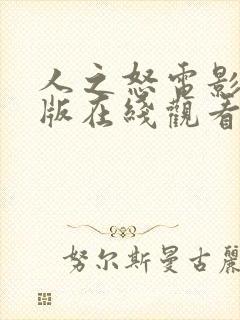 人之怒電影
版在綫觀看
努尔斯曼古麗